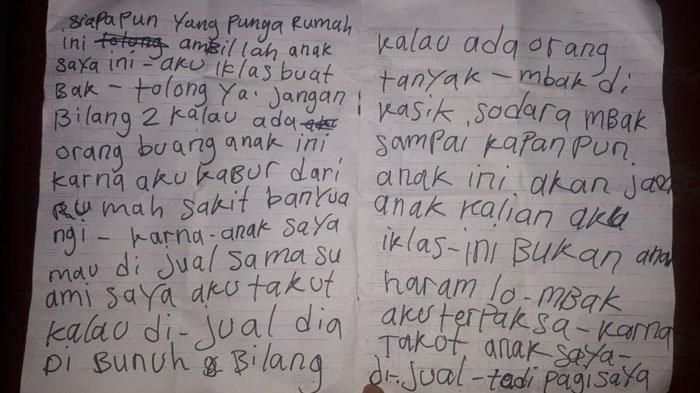 siapapun yang punga rumah
ini tolong ambillah anak
saya ini - aku iklas buat
Bak - tolong ya. jangan
Bilang 2 kalau ada
orang buang anak ini
karna aku kabur dari
Rumah sakit banyua
ngi - karna - anak saya
mau di jual sama su
ami saya aku takut
kalau di - jual dia
Di Bunuh & Bilang
kalau ada orang
tanyak - mbak di
kasik sodara mBak
sampai kapan pun.
anak ini akan jadi
anak kalian aku
iklas - ini Bukan anak
haram lo - mBak
aku terpaksa - karna
Takot anak saya -
di - jual - tadi pagi saya